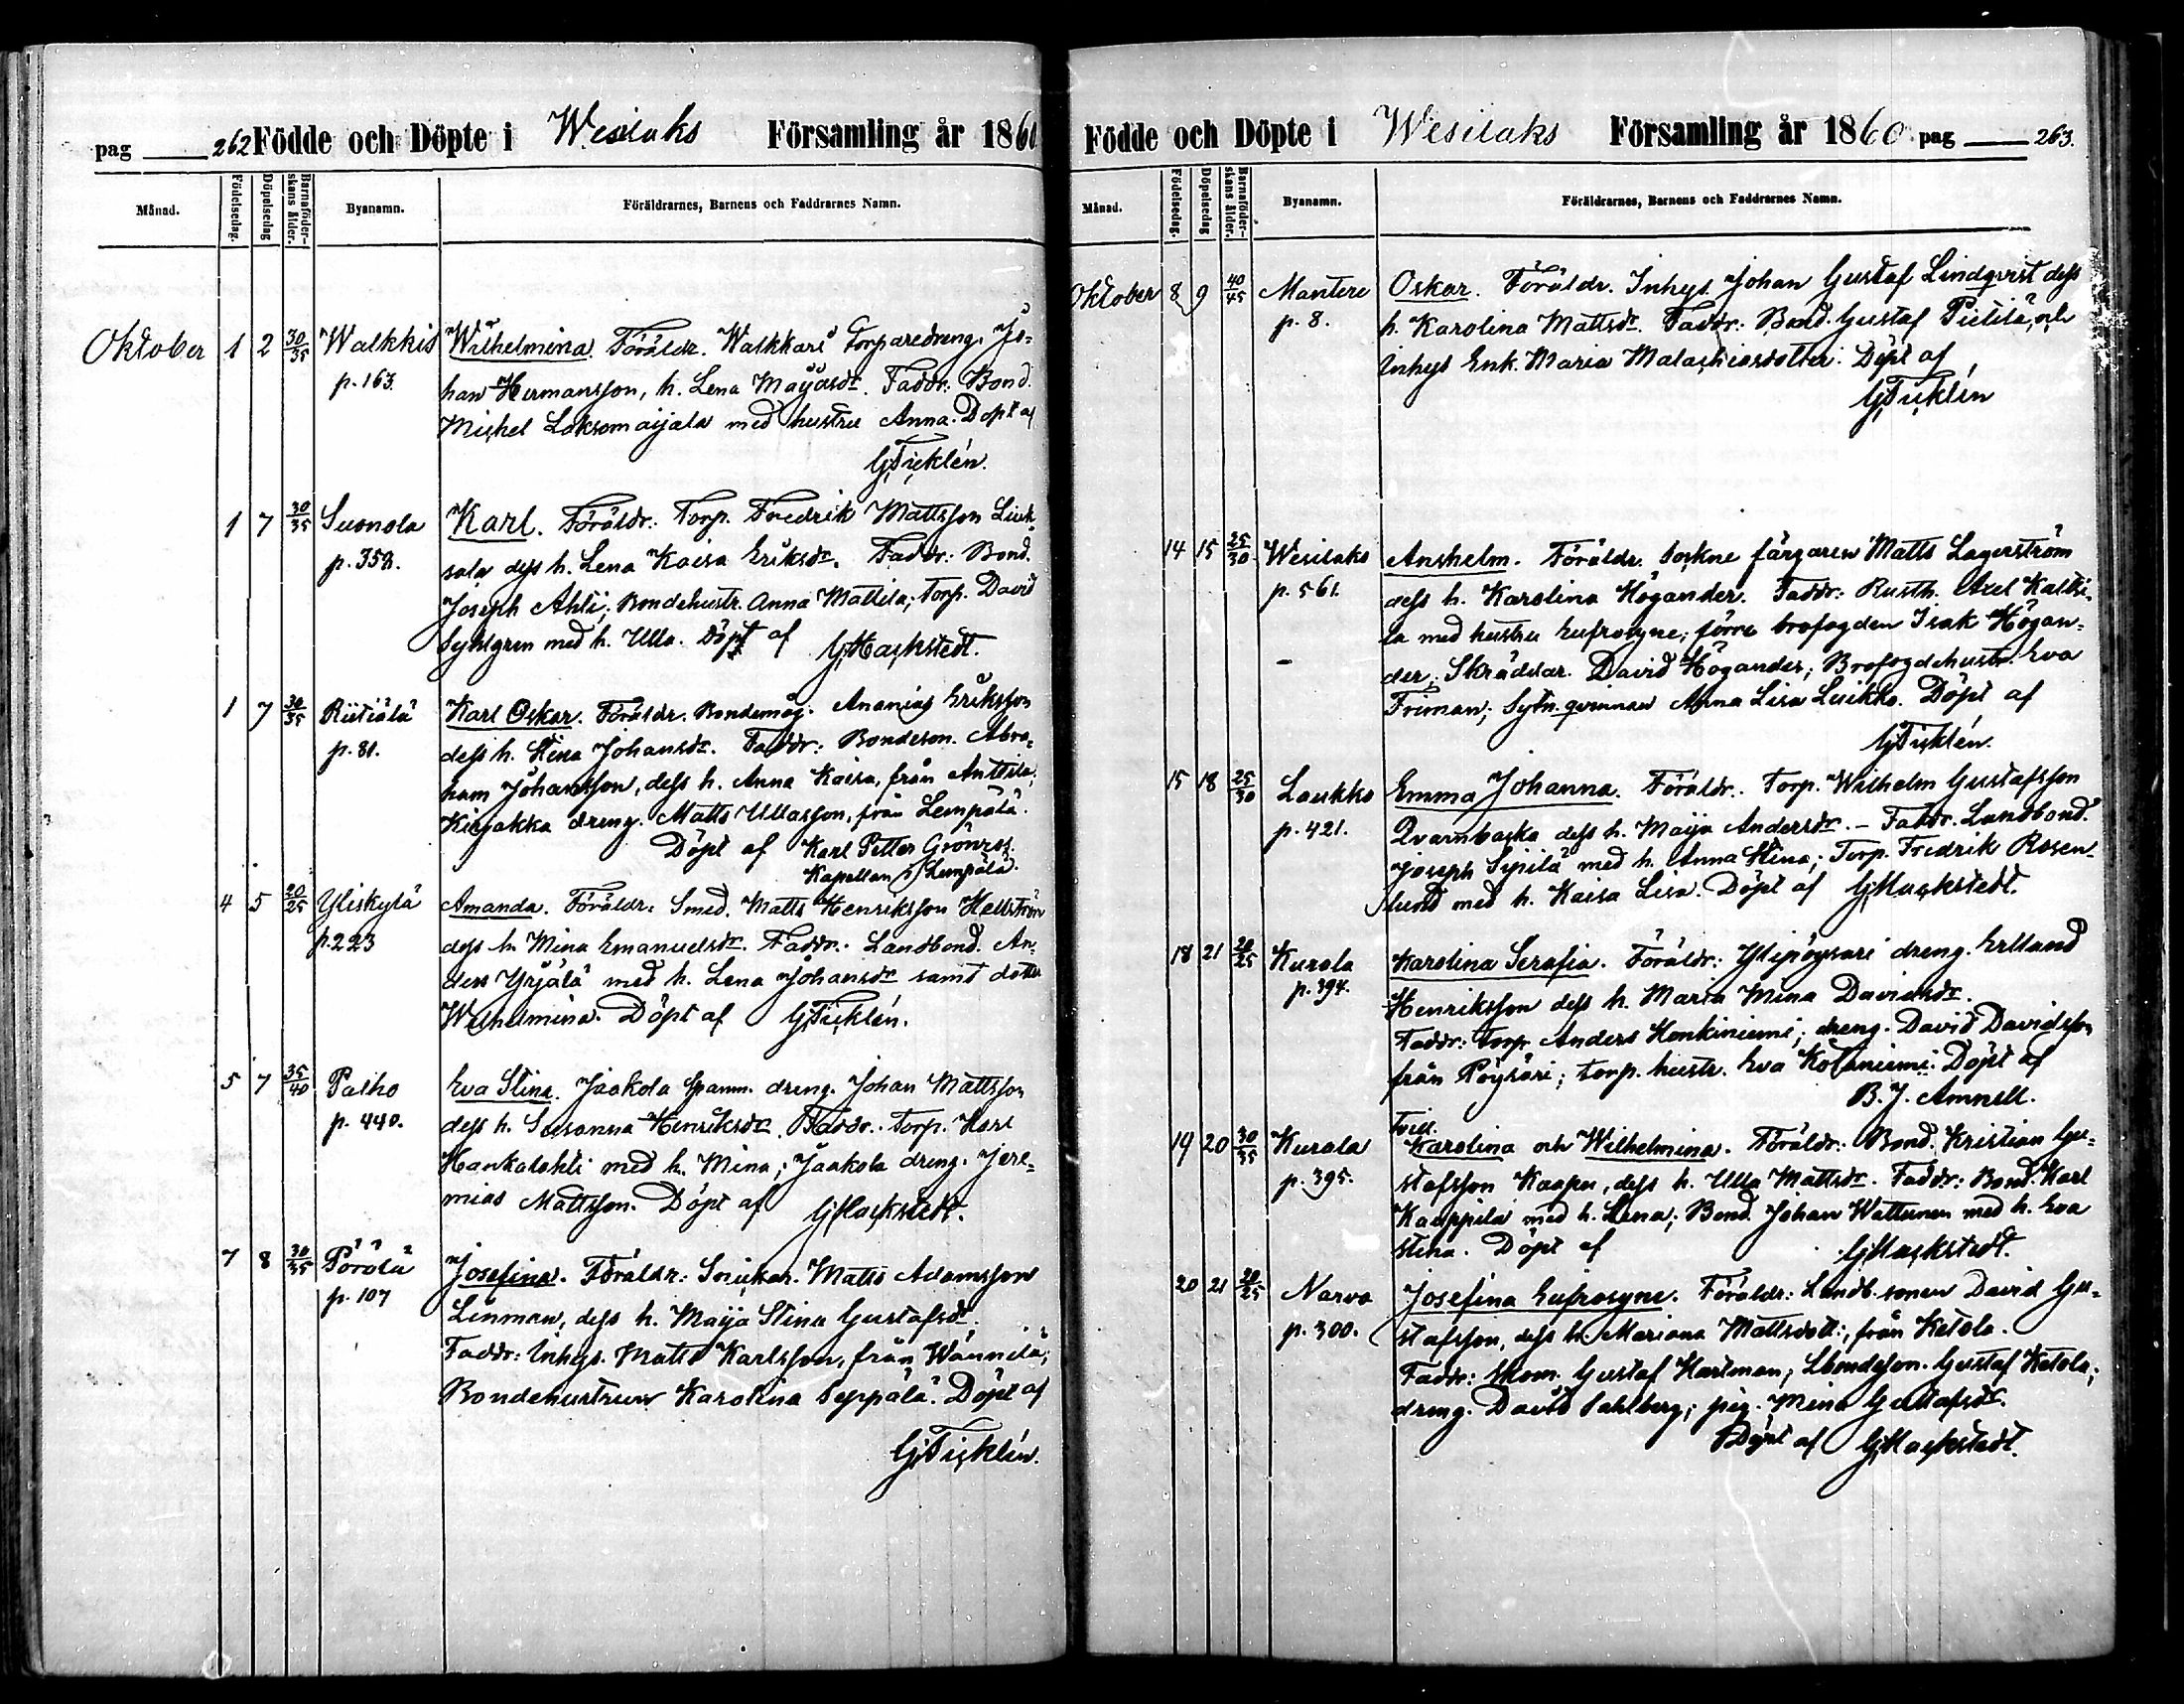 pag 262 Födde och Döpte i Wesilaks Församling år 1860
Månad. Födelsedag. Döpelsedag Barnaföder-skans ålder. Byanamn. Föräldrarnes, Barnens och Faddrarnes Namn.
Oktober 1 2 30/35 Walkkis Wilhelmina. Föräldr. Walkkari Torparedreng. Jo-
p. 163. han Hermansson, h. Lena Majasdr. Faddr: Bond.
Michel Laksomaijala med hustru Anna. Döpt af
G,Ticklén.
1 7 30/35 Suonola Karl. Föräldr: Torp. Fredrik Mattsson
p. 359. dess h. Lena Kaisa Eriksdr. Faddr: Bond.
Joseph Ahti; Bondehustr. Anna Mattila; Torp. David
med h. Ulla. Döpt af G,Hackstedt.
1 7 30/35 Riitiälä Karl Oskar. Föräldr. Bondemåg. Ananias Eriksson
p. 81. dess h. Stina Johansdr. Faddr: Bondeson. Abra-
ham Johansson, dess h. Anna Kaisa, från Anttila;
Kirjakka dreng. Matts Ullasson, från Lempälä.
Döpt af Karl Petter Grönros
Kapellan i Lempälä.
4 5 20/25 Yliskylä Amanda. Föräldr: Smed. Matts Henriksson Hellström
p. 223 dess h. Mina Emanuelsdr. Faddr. Landbond. An-
ders Yrjälä med h. Lena Johansdr samt dotter
Wilhelmina. Döpt af G,Ticklén.
5 7 35/40 Palho Eva Stina. Jaakola Spanm. dreng. Johan Mattsson
p. 440. dess h. Susanna Henriksdr. Faddr. Torp. Karl
Hankalahti med h. Mina; Jaakola dreng. Jere-
mias Mattsson. Döpt af G,Hackstedt.
7 8 30/35 Pörölä Josefina. Föräldr: Snickar. Matts Adamsson
p. 107 Linman, dess h. Maija Stina Gustafsdr.
Faddr: Inhys. Matts Karlsson, från Wännilä;
Bondehustrun Karolina Seppälä. Döpt af
G,Ticklén.
Födde och Döpte i Wesilaks Församling år 1860 pag 263.
Månad. Födelsedag. Döpelsedag Barnaföder-skans ålder. Byanamn. Föräldrarnes, Barnens och Faddrarnes Namn.
Oktober 8 9 40/45 Mantere Oskar. Föräldr. Inhys. Johan Gustaf Lindqvist dess
p. 8. h. Karolina Mattsdr. Faddr: Bond. Gustaf Pietilä, och
Inhys Enk. Maria Malachiasdotter. Döpt af
G,Ticklén
14 15 25/30 Wesilaks Anshelm. Föräldr. Sockne färgaren Matts Lagerström
p. 561. dess h. Karolina Högander. Faddr: Rusth. Axel Kaltsi-
la med hustru Eufrosyne; förre brofogden Isak Högan-
der; Skräddar. David Högander; Brofogdehustr. Eva
Friman; Sytn. qvinnan Anna Lisa Luikko. Döpt af
G,Ticklén.
15 18 25/30 Laukko Emma Johanna. Föräldr. Torp. Wilhelm Gustafsson
p. 421. Qvarnbacka dess h. Maija Andersdr. – Faddr. Landbond.
Joseph Sipilä med h. Anna Stina; Torp. Fredrik Rosen-
lund med h. Kaisa Lisa. Döpt af G,Hackstedt.
18 21 20/25 Kurala Karolina Serafia. Föräldr: Ylipöysari dreng. Erland
p. 394. Henriksson dess h. Maria Mina Davidsdr.
Faddr: Torp. Anders Honkiniemi; dreng. David Davidsson
från Pöysari; torp. hustr. Eva Kotaniemi. Döpt af
B. J. Amnell.
Tvill.
19 20 30/35 Kurala Karolina och Wilhelmina. Föräldr: Bond. Kristian Gu-
p. 395. stafsson Kaapu, dess h. Ulla Mattsdr. Faddr: Bond. Karl
Kauppila med h. Lena; Bond. Johan Wattunen med h. Eva
Stina. Döpt af G,Hackstedt.
20 21 20/25 Narva Josefina Eufrosyne. Föräldr: Landb. sonen David Gu-
p. 300. stafsson, dess h. Mariana Mattsdott:, från Ketola.
Faddr: Skom. Gustaf Hartman; Lbondeson. Gustaf Ketola;
dreng. David Sahlberg; pig. Mina Gustafsdr.
Döpt af G,Hackstedt.